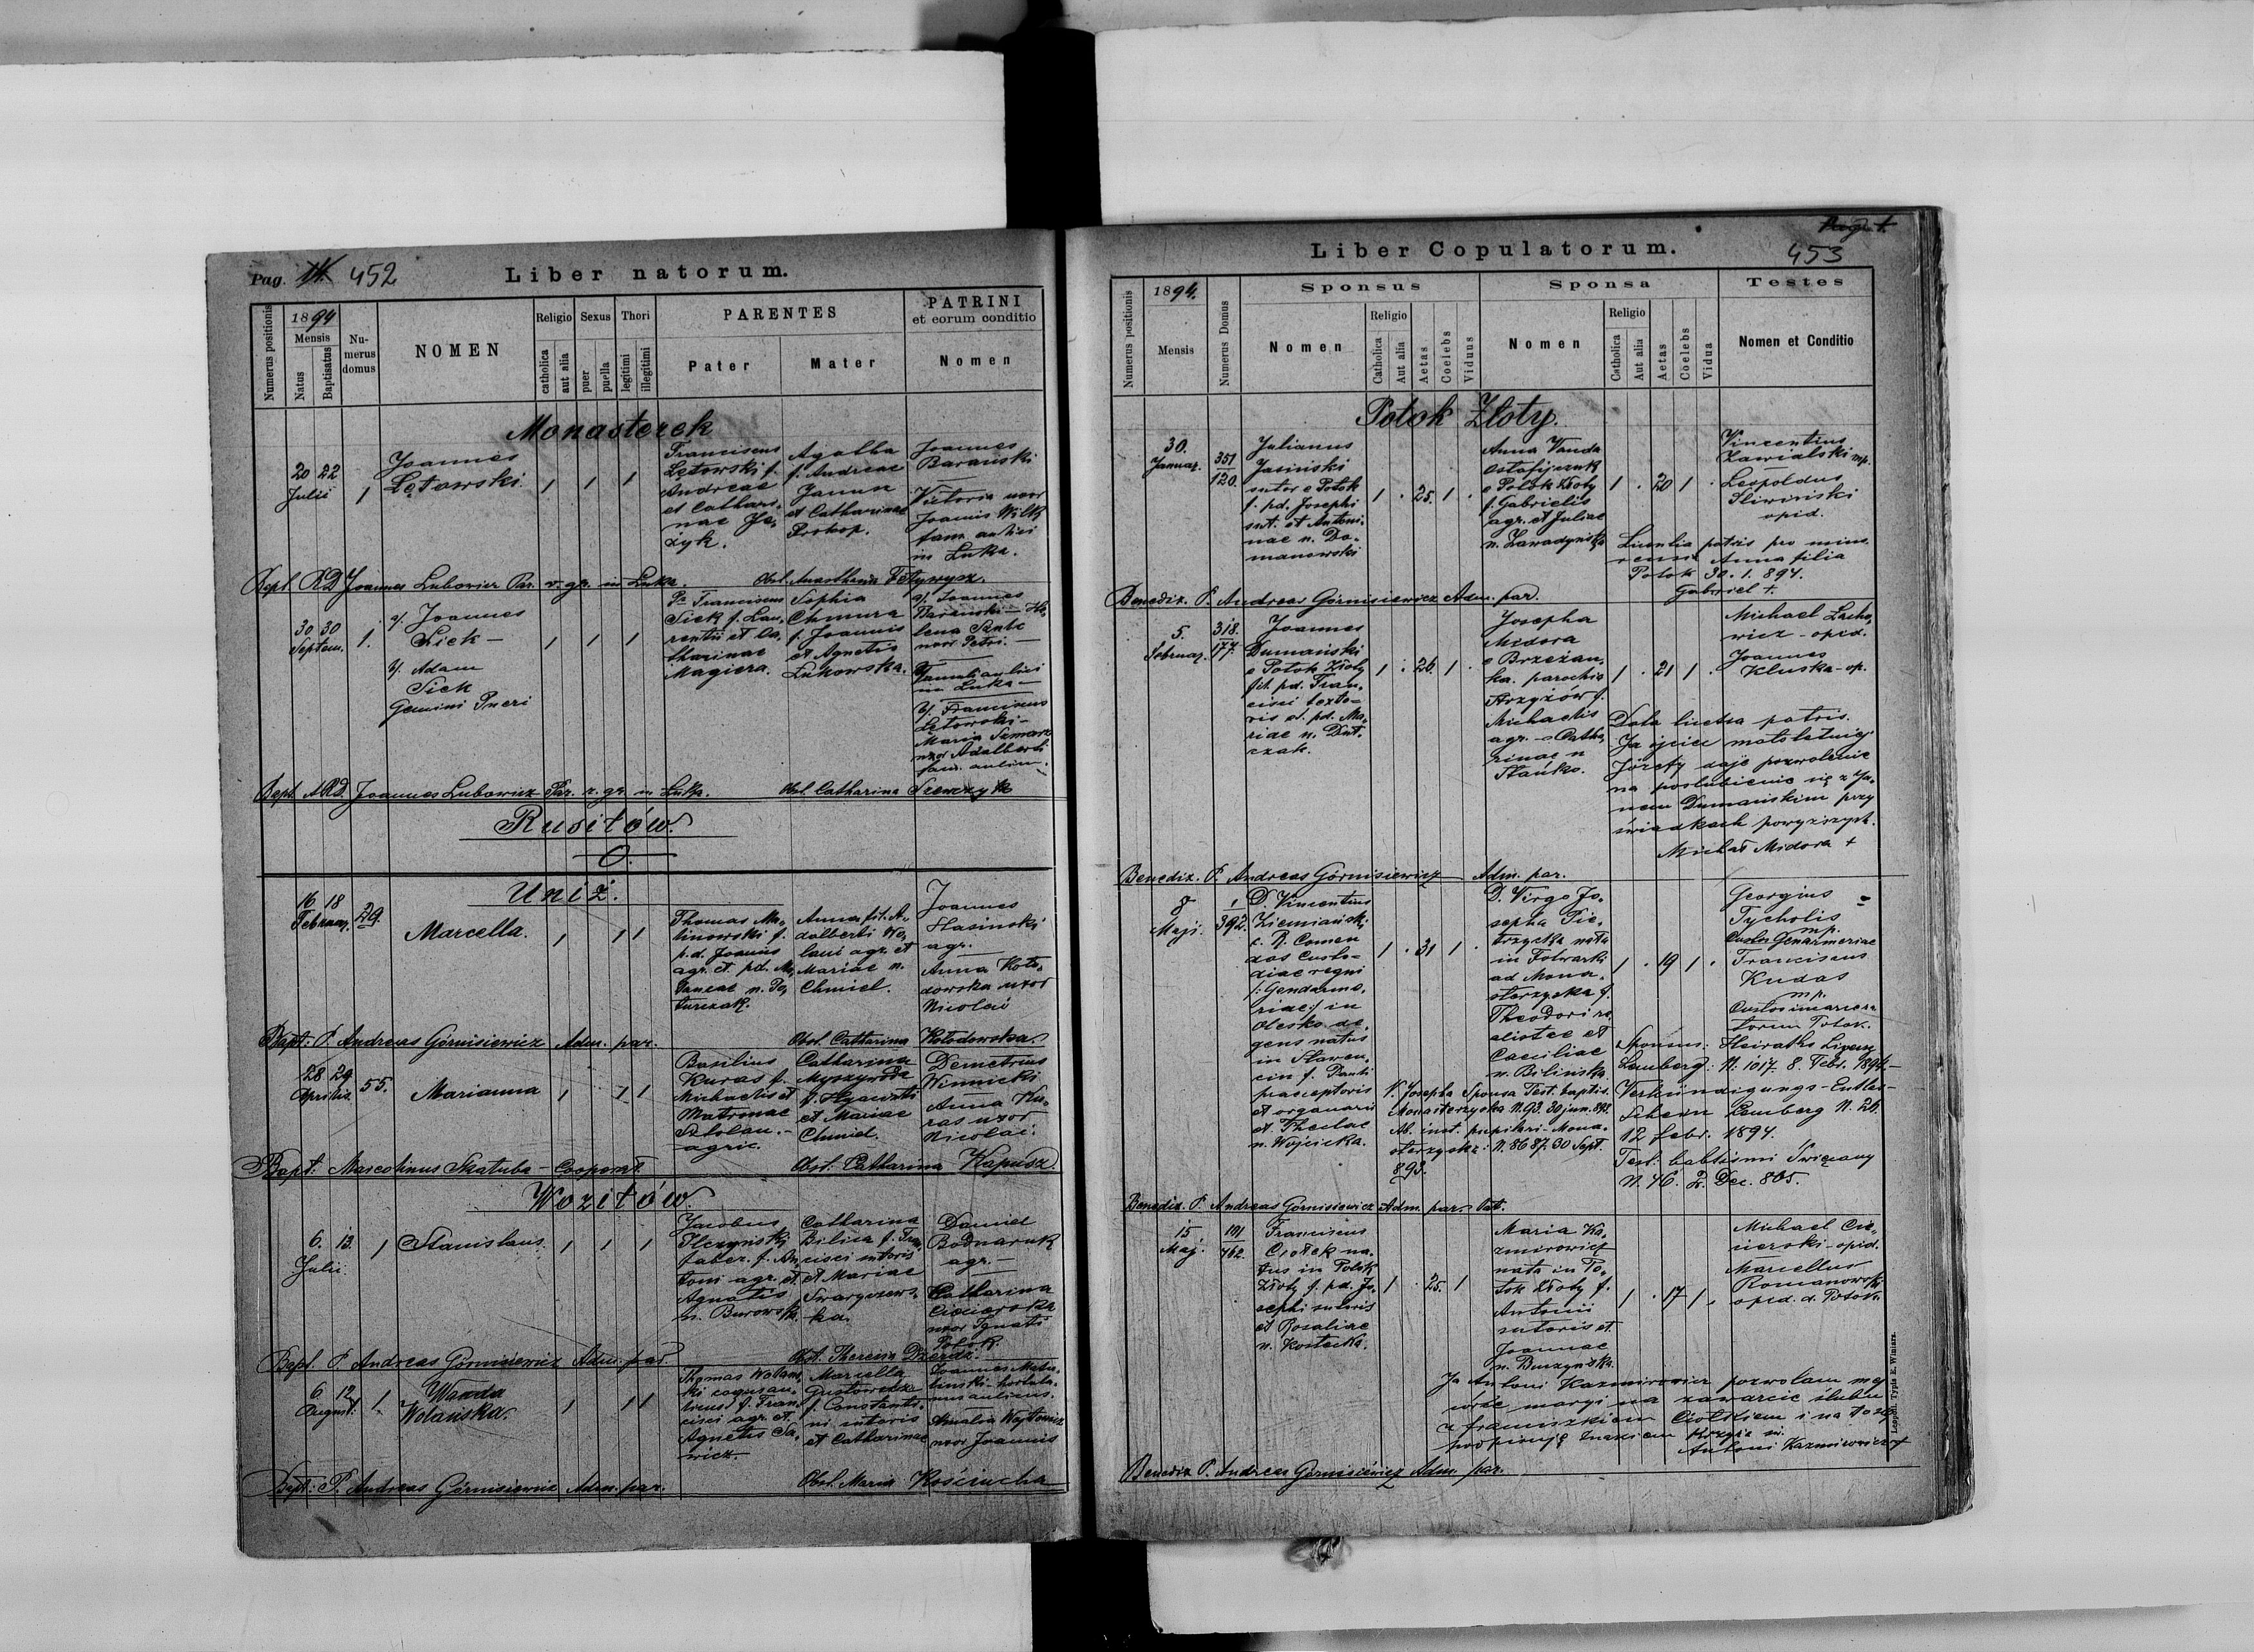 Pag. 452
Liber natorum.
Numerus positionis
1894
Mensis
Natus
Baptisatus
Nu-
merus
domus
NOMEN
Religio
catholica
aut alia
Sexus
puer
puella
Thori
legitimi
illegitimi
PARENTES
Pater
Mater
PATRINI
et eorum conditio
Nomen
Monasterek
20 22
Julii
1
Joannes
Łętowski
1 1 1
Franciscus
Łętowski f.
Andreae
et Cathari-
nae
Agatha
f. Andreae
Janun
et Catharinae
Prokop.
Joannes
Barański
Victoria uxor
Joannis Wilk
fam. aulici
in Łuka.
Bapt. RD Joannes Lubowicz Par. r. gr. in Łuka. Obst. Anasthasia
30 30
Septem.
1.
1/. Joannes
Sick –
2/. Adam
Sick
Gemini Pueri
1 1 1
Franciscus
Sick f. Lau-
rentii et Ca-
tharinae
Magiera.
Sophia
Chmura
f. Joannis
et Agnetis
Łukowska.
1/. Joannes
Barański – He-
lena
uxor Petri. –
Famuli aulici
in Łuka –
2/. Franciscus
Łętowski –
Maria
uxor Adalberti
fam. aulici.
Bapt. ARD. Joannes Lubowicz Par. r. gr. in Łuka. Obst. Catharina Szewczyk
Rusiłów.
O.
Uniż.
16 18
Februar.
29.
Marcella.
1 1 1
Thomas Ma-
linowski f.
p.d. Joannis
agr. et pd. Ma-
n.
Anna fil. A-
dalberti Wo-
agr. et
Mariae n.
Chmiel.
Joannes
Stasinski
agr.
Anna Koło-
dowska uxor
Nicolai
Bapt: P. Andreas Górnisiewicz Adm. par. Obst. Catharina Kołodowska.
28 29
Aprilis
55.
Marianna
1 1 1
Basilius
Kuras f.
Michaelis et
Matronae
agric.
Catharina
et Mariae
Chmiel.
Demetrius
Winnicki
Anna Ku-
ras uxor
Nicolai.
Bapt: Marcelinus Skałuba – Cooperat. Obst: Catharina Kapusz.
Woziłów.
6. 13.
Julii.
1
Stanislaus.
1 1 1
Jacobus
Ilczyński
faber. f. An-
toni agr. et
Agnetis
n. Burowska.
Catharina
Bilica f. Fran-
cisci sutoris
et Mariae
ka.
Daniel
Bodnaruk
agr. –
Catharina
uxor Ignati
Potok.
Bapt. P. Andreas Górnisiewicz Adm. par. Obst. Theresia
6 12
August:
1.
Wanda
Wolańska.
1 1 1
Thomas Wolań-
ski coquus au-
licus f. Fran-
cisci agr. et
Agnetis Sa-
wicz.
Marcella
f. Constanti-
ni sutoris
et Catharinae
Joannes
hortula-
nus aulicus.
Amalia Wojtowicz
uxor Joannis
Bapt: P. Andreas Górnisiewicz Adm. par. Obst. Maria Kościucha
453
Liber Copulatorum.
Numerus positionis
1894.
Mensis
Numerus Domus
Sponsus
Nomen
Religio
Catholica
Aut alia
Aetas
Coelebs
Viduus
Sponsa
Nomen
Religio
Catholica
Aut alia
Aetas
Coelebs
Vidua
Testes
Nomen et Conditio
Potok Złoty.
30.
Januar.
351
120.
Julianus
Jasiński
sutor e Potok
f. pd. Josephi
sut. et Antoni-
nae n. Do-
manowski
1 . 25. 1 .
Anna Vanda
Ostafijczuk
e Potok Złoty
f. Gabrielis
agr. et Juliae
n. Zawadyńska
1 . 20 1 .
Vincentius
Zawialski mp.
Leopoldus
Sliwiński
opid.
Licentia patris pro mino-
renni Anna filia
Potok 30. 1. 894.
Gabriel +.
Benedix. P. Andreas Górnisiewicz Adm. par.
5.
Februar.
318.
177.
Joannes
Dumański
e Potok Złoty
fil. pd. Fran-
cisci texto-
ris et. pd. Ma-
riae n. Dut-
czak.
1 . 26. 1 .
Josepha
Midora
e Brzeżan-
ka. parochia
Strzyżów f.
Michaelis
agr. – Catha-
rinae n
Stańko.
1 . 21 1 .
Michael Lacho-
wicz – opid.
Joannes
Kluska – op.
Data licentia patris.
Ja ojciec małoletniej
Józefy daję pozwolenie
na poślubienie się z Ja-
nem Dumańskim przy
świadkach powyższych.
Michał Midora +
Benedix. P. Andreas Górnisiewicz Adm. par.
8
Maji.
1
392.
D. Vincentius
Ziemiański
c. R. Comen
das Custo-
diae regni
/: Gendarme-
riae:/ in
Olesko de-
gens natus
in Stawen-
cin f. Pauli
praeceptoris
et organarii
et Theclae
n. Wojcicka.
1 . 31 1 .
D. Virgo Jo-
sepha Pie-
trzycka nata
in Folwarki
ad Mona-
sterzyska f.
Theodori
et
Caeciliae
n. Bilinska
1 . 19 1 .
Georgius
Tycholis
mp.
Custos Genarmeriae
Franciscus
Kudas
mp.
Custos
Potok.
N. Josepha Sponsa Test. baptis.
Monasterzyska N. 93. 30 jun. 892.
Ab. inst. pupilari – Mona-
sterzyska: N. 8687. 30 Sept.
893.
Sponsus: Heiraths Licenz
Lemberg: N. 1017. 8. Febr. 1894. –
Verkündigungs-Entlas-
Schein Lemberg N. 26.
12 Febr. 1894.
Test. babtismi Święcany
N. 46. 2. Dec. 865.
Benedix. P. Andreas Górnisiewicz Adm. par. Pot.
15
Maj.
191
462.
Franciscus
Ciołek na-
tus in Potok
Złoty f. pd. Jo-
sephi sutoris
et Rosaliae
n. Kostecka.
1 . 25. 1
Maria Ka-
zmirowicz
nata in Po-
tok Złoty f.
Antonii
sutoris et
Joannae
n. Buczyńska.
1 . 17 1 .
Michael Cie-
sierski – opid.
Marcellus
Romanowski
opid. d. Potok.
Ja Antoni Kazmirowicz pozwalam mej
córce maryi na zawarcie ślubu
z franciszkiem Ciołkiem i na to się
podpisuję znakiem krzyża św.
Antoni Kazmirowicz +
Benedix P. Andreas Górnisiewicz Adm. par.
Leopoli. Typis E. Winiarz.